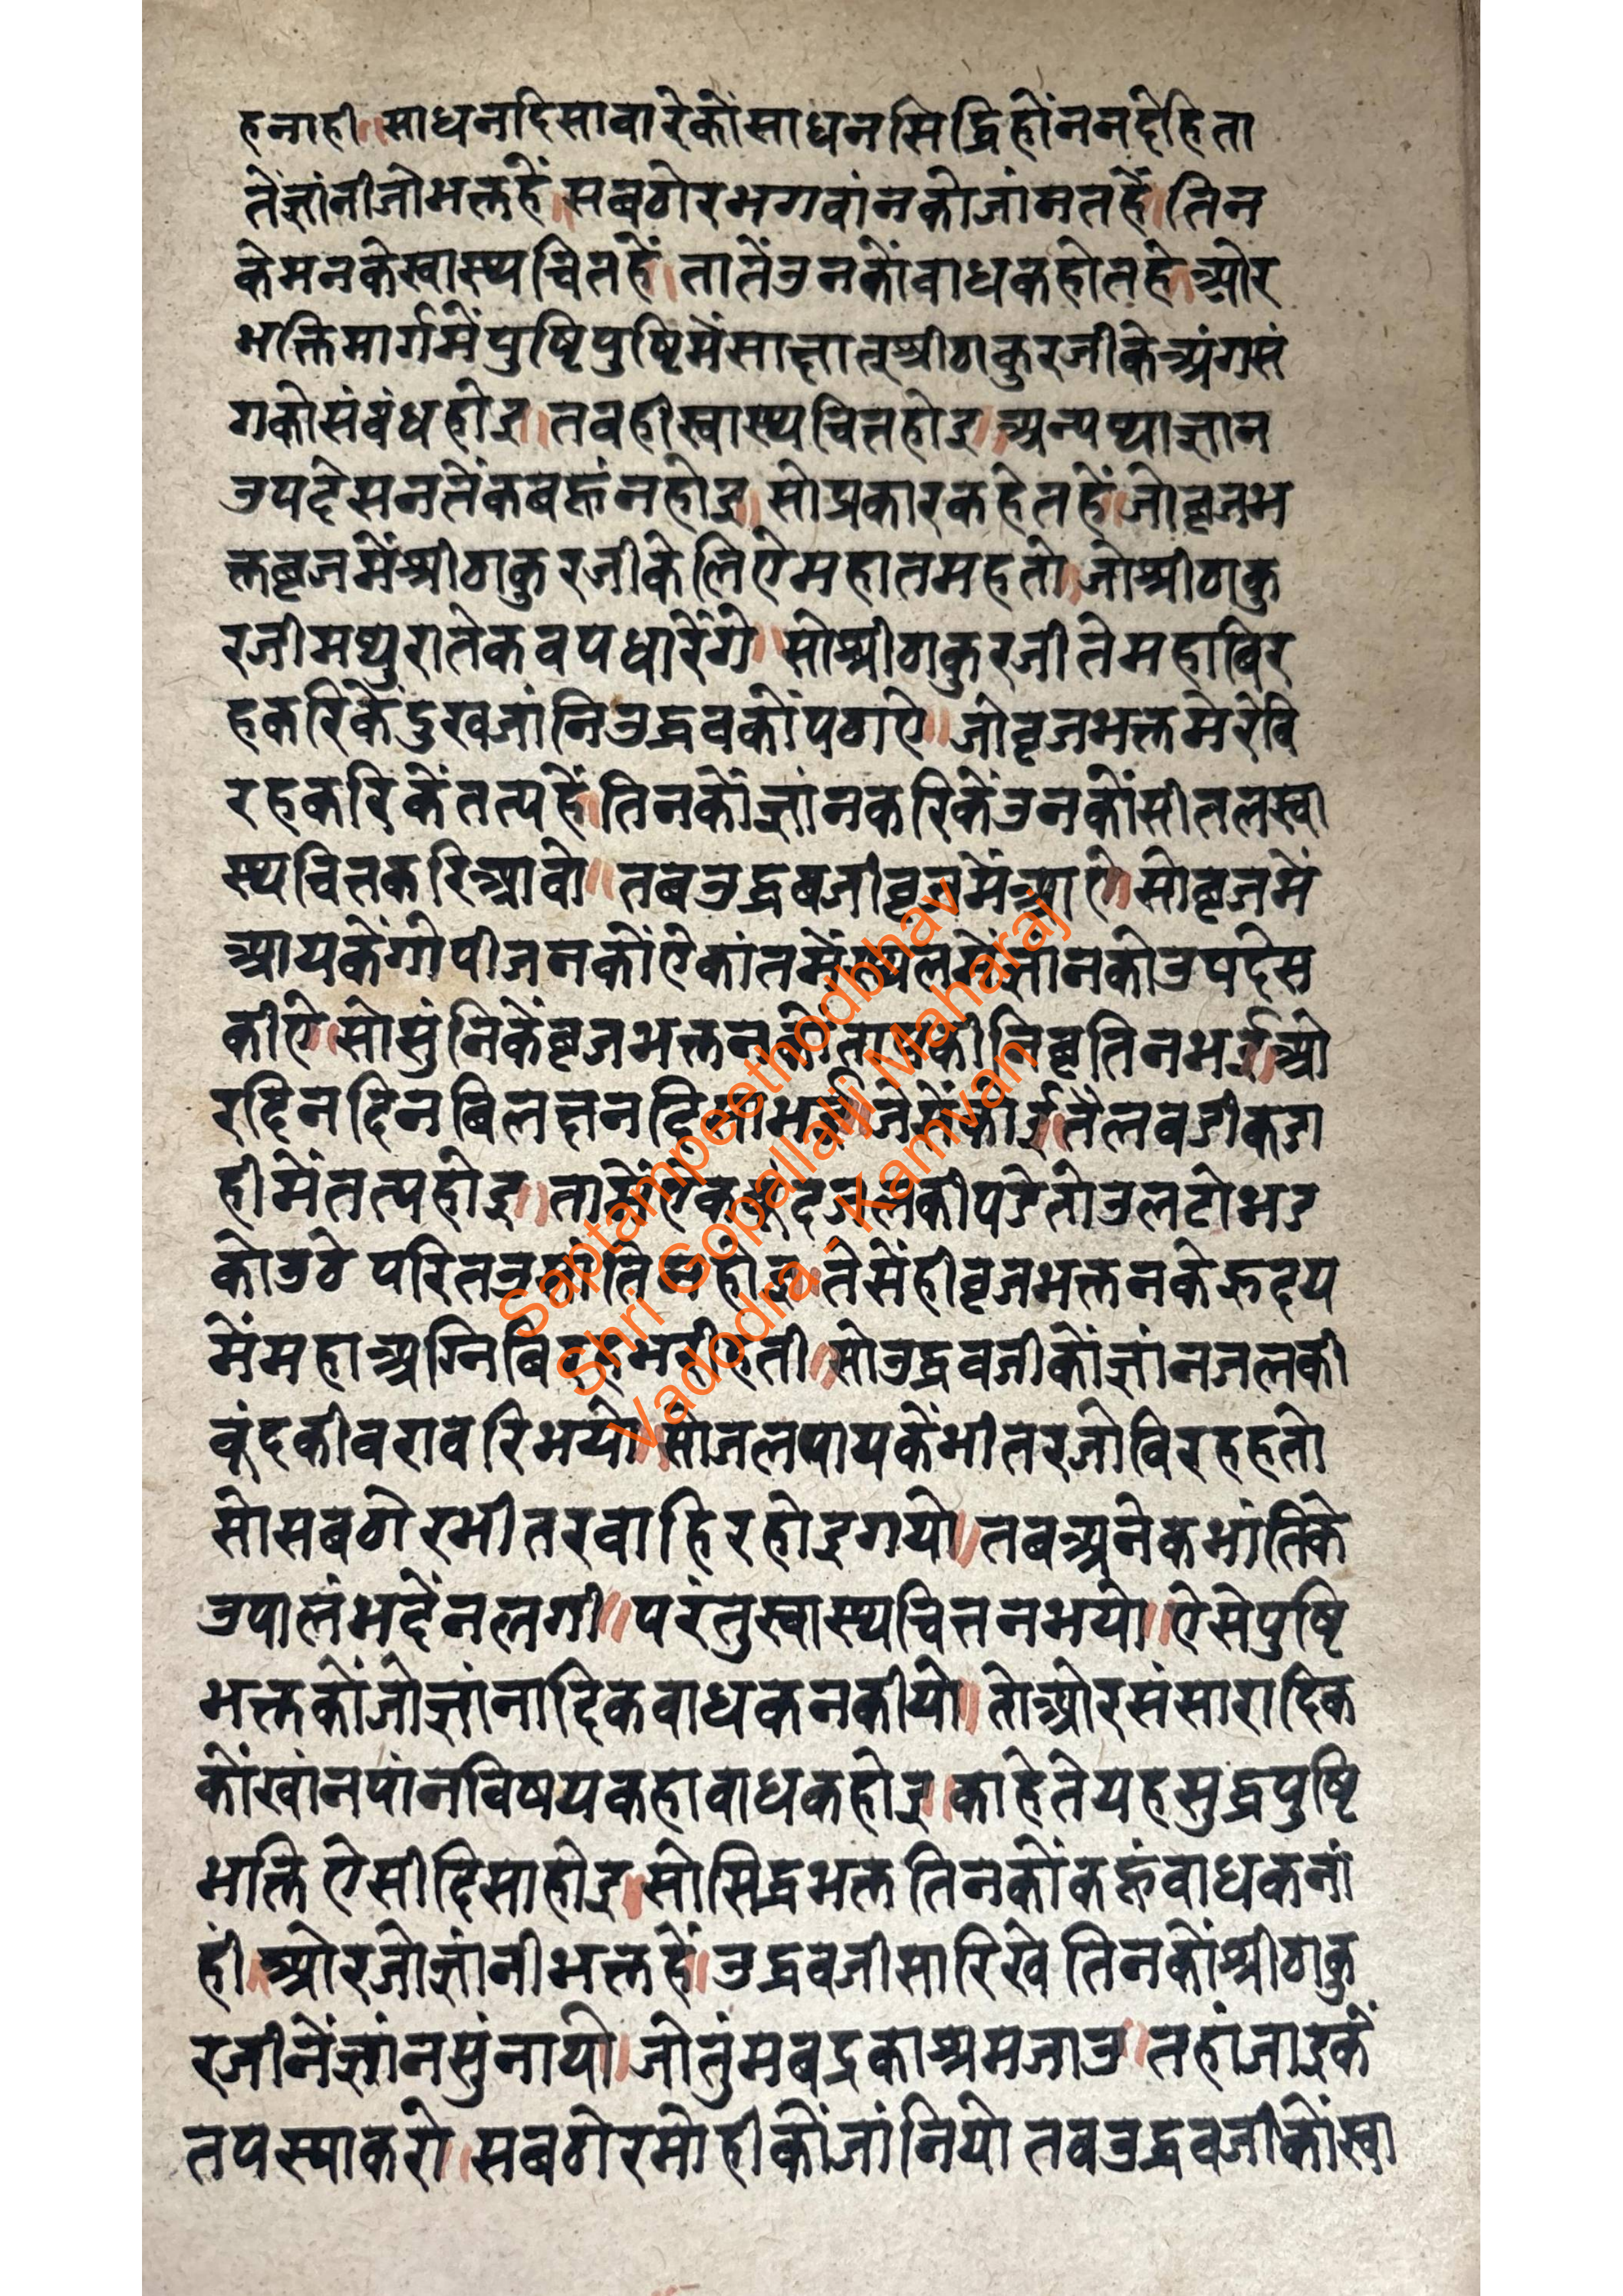 हनाही ॥ साधनदिसावारेकोंसाधनसिद्धिहोंननदेहिता
तेंज्ञांनीजोभक्तहें ॥ सबठोरभगवांनकोजांनतहें ॥ तिन
केमनकेस्वास्थचितहें ॥ तातेंउनकोंबाधकहोतहे ॥ ओर
भक्तिमार्गमेंपुष्टिपुष्टिमेंसाक्षातश्रीठाकुरजीकेअंगसं
गकोसंबंधहोइ ॥ तवहीस्वास्थचितहोइ ॥ अन्यथाज्ञान
उपदेसनतेंकबहूंनहोइ ॥ सोप्रकारकहेतहें ॥ जोबृजभ
क्तबृजमेंश्रीठाकुरजीकेलिऐमहातमहतो ॥ जोश्रीठाकु
रजीमथुरातेकवपधारेंगे ॥ सोश्रीठाकुरजीतेमहाबिर
हकरिकेंदुखजांनिउद्धवकोंपठाऐ ॥ जोबृजभक्तमेरेंवि
रहकरिकेंतत्पहें ॥ तिनकोंज्ञांनकरिकेंउनकोंसीतलस्वा
स्थचितकरिआवो ॥ तबउद्धवजीबृजमेंआऐ ॥ सोबृजमें
आयकेंगोपीजनकोंऐकांतमेंस्थलमेंज्ञांनकोउपदेस
कीऐ ॥ सोसुंनिकेंबृजभक्तनकोंतापकीनिबृतिनभई ॥ ओ
रदिनदिनबिलक्षनदिसाभई ॥ जेसेंकोई ॥ तैलवडीकडा
हीमेंतत्पहोइ ॥ तामेंऐकबूंदजलकीपडेतोउलटोभड
कोउठे परितउसांतिनहोइ ॥ तेसेंहीबृजभक्तनकेहृदय
मेंमहाअग्निबिरहभरीहती ॥ सोउद्धवजीकोंज्ञांनजलकी
बूंदकीबरावरिभयो ॥ सोजलपायकेंभीतरजोविरहहतो
सोसबठोरभीतरवाहिरहोइगयो ॥ तबअनेकभांतिके
उपालंभदेंनलगी ॥ परंतुस्वास्थचितनभयो ॥ ऐसेपुष्टि
भक्तकोंजोज्ञांनादिकवाधकनकीयो ॥ तोओरसंसारादिक
कोंखांनपांनविषयकहावाधकहोइ ॥ काहेतेयहसुद्धपुष्टि
भक्ति ऐसीदिसाहोइ ॥ सोसिद्धभक्त तिनकोंकहूंवाधकनां
हीं ॥ ओरजोज्ञांनीभक्तहें ॥ उद्धवजीसारिखे तिनकोंश्रीठाकु
रजीनेंज्ञांनसुंनायो ॥ जोतुंमबद्रकाश्रमजाउ ॥ तहांजाइकें
तपस्याकरो ॥ सबठोरमोहीकोंजांनियो तवउद्धवजीकोंस्वा
Saptampeethodbhav
Shri Gopallalji Maharaj
Vadodra - Kamvan